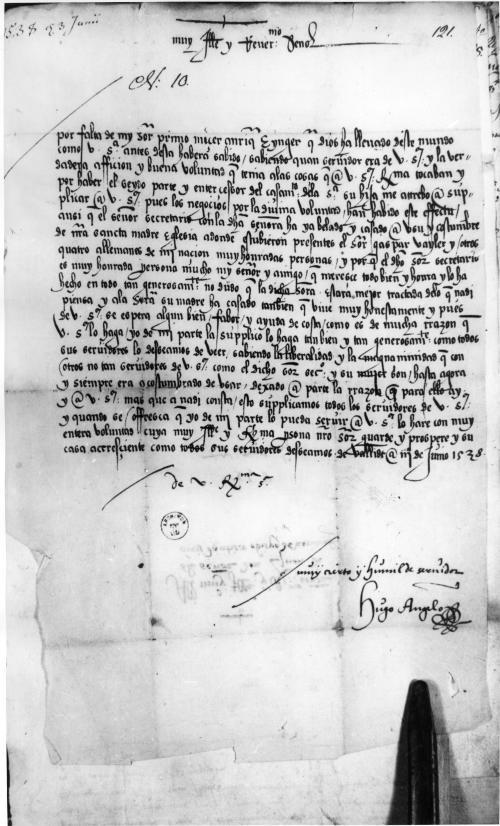 1538 23 Junii
121.
muy Ille y Rever:mo Senor
N. 10.
por falta de my Sor primo micer anriq Eynger q dios ha llevado deste mundo
como v. s. antes desta habera sabido / sabiendo quan servidor era de v. s. y la ver-
dadera afficion y buena voluntad q tenia alas cosas q @ v. s. R.ma tocaban y
por haber el seydo parte y entercessor del casami.to dela s.ra su hija me atrebo @ sup-
plicar @ v. s. pues los negocios por la divina voluntad / han habido este effectu /
ansi q el señor secretario con la dha señora ha ya belado y casado @ usu y costumbre
de nra sancta madre Eglesia adonde estubieron presentes el Sor gaspar Vayler y otros
quatro allemanes de mi nacion muy honradas personas / y por q el dho Sor secretario
es muy honrada persona mucho my señor y amigo / q meresce todo bien y honra y lo ha
hecho en todo tan generosamt.e no dudo q la dicha sora. estara mejor tractada delo q nadi
piensa y ala sora su madre ha casado tanbien q vive muy honestamente y pues
de v. s. se espera algun bien / fabor / y ayuda de costa / como es de mucha rrazon q
v. s. lo haga / yo de mi parte la supplico lo haga tanbien y tan generosamt.e como todos
sus servidores lo deseamos de veer, sabiendo la liberalidad y la magnanimidad q con
otros no tan servidores de v. s. como el dicho sor sec.o y su muger son / hasta agora
y siempre era acostumbrado de usar, dexado @ parte la rrazon q para ello ay
y @ v. s. mas que a nadi consta / esto supplicamos todos los servidores de v. s.
y quando se / offresca q yo de mi parte lo pueda servir @ v. s. lo hare con muy
entera voluntad cuya muy Ille y R.ma persona nro sor guarde y prospere y su
casa acresciente como todos sus servidores deseamos de vallid @ de Junio 1538.
de v. R.ma s.
muy cierto y humilde servidor
Hugo Angelo